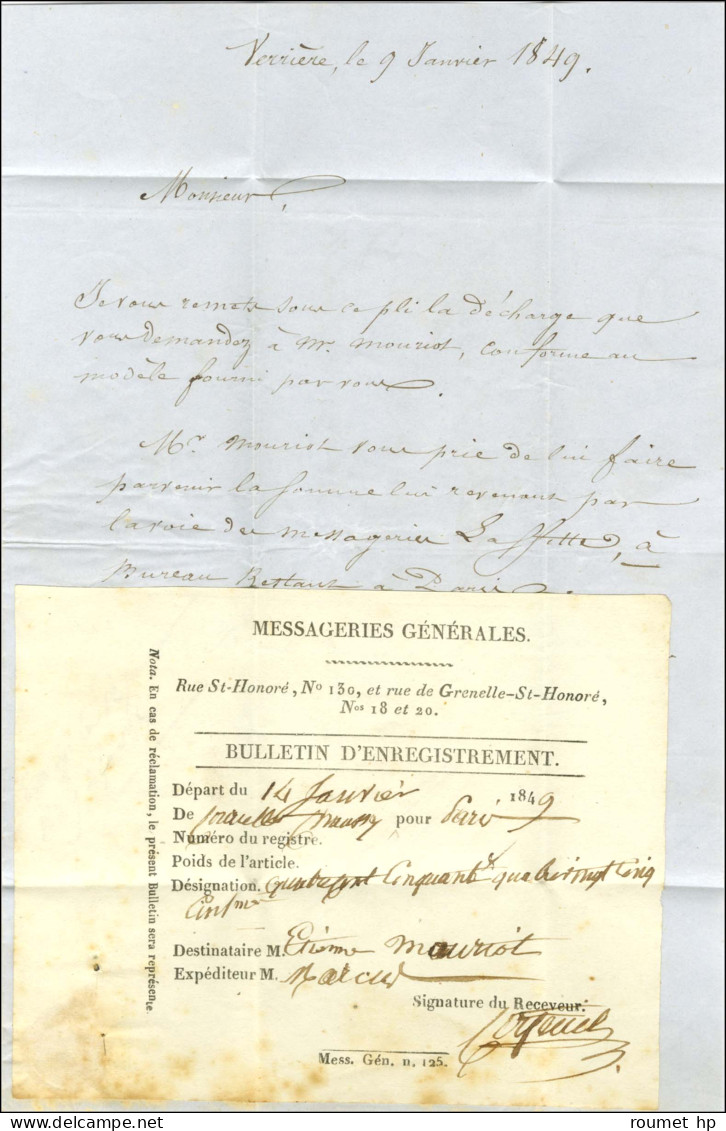 Verrière, le 9 Janvier 1849.
Monsieur,
Je vous remets sous ce pli la décharge que
vous demandez à Mr. Mouriot, conforme au
modèle fourni par vous.
Mr. Mouriot vous prie de lui faire
parvenir la somme lui revenant par
la voie des messageries Laffitte, à
Bureau Restant à Paris.
MESSAGERIES GÉNÉRALES.
Rue St-Honoré, No 130, et rue de Grenelle-St-Honoré,
Nos 18 et 20.
BULLETIN D'ENREGISTREMENT.
Départ du 14 Janvier 1849
De pour Paris
Numéro du registre.
Poids de l'article.
Désignation. Cinquante quatre vingt Cinq
Destinataire M. Etienne Mouriot
Expéditeur M.
Signature du Receveur.
Mess. Gén. n. 125.
Nota. En cas de réclamation, le présent Bulletin sera représenté.
delcampe.net
roumet hp